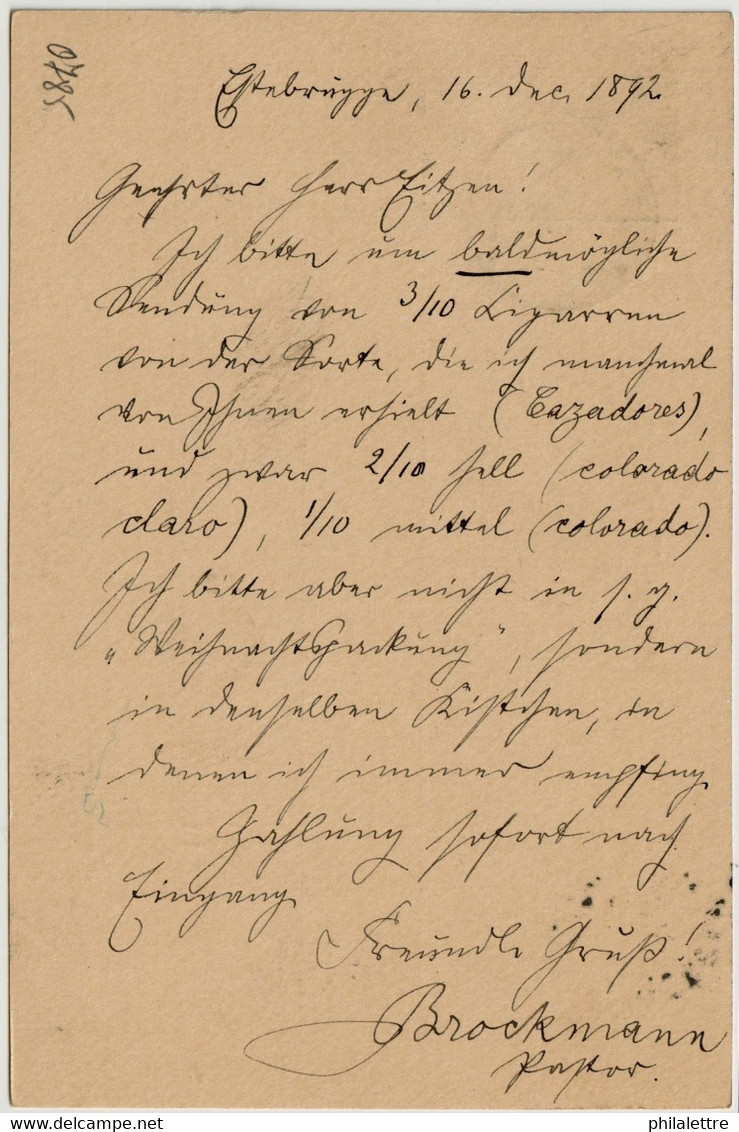 5870
Estebrügge, 16. Dec. 1892.
Geehrter Herr Eitzen!
Ich bitte um baldmögliche
Sendung von 3/10 Cigarren
von der Sorte, die ich manchmal
von Ihnen erhielt (Cazadores),
und zwar 2/10 hell (colorado
claro), 1/10 mittel (colorado).
Ich bitte aber nicht in s. g.
„Weihnachtspackung“, sondern
in denselben Kistchen, in
denen ich immer empfing.
Zahlung sofort nach
Eingang.
Freundl. Gruß!
Brockmann
Pastor.
philalettre